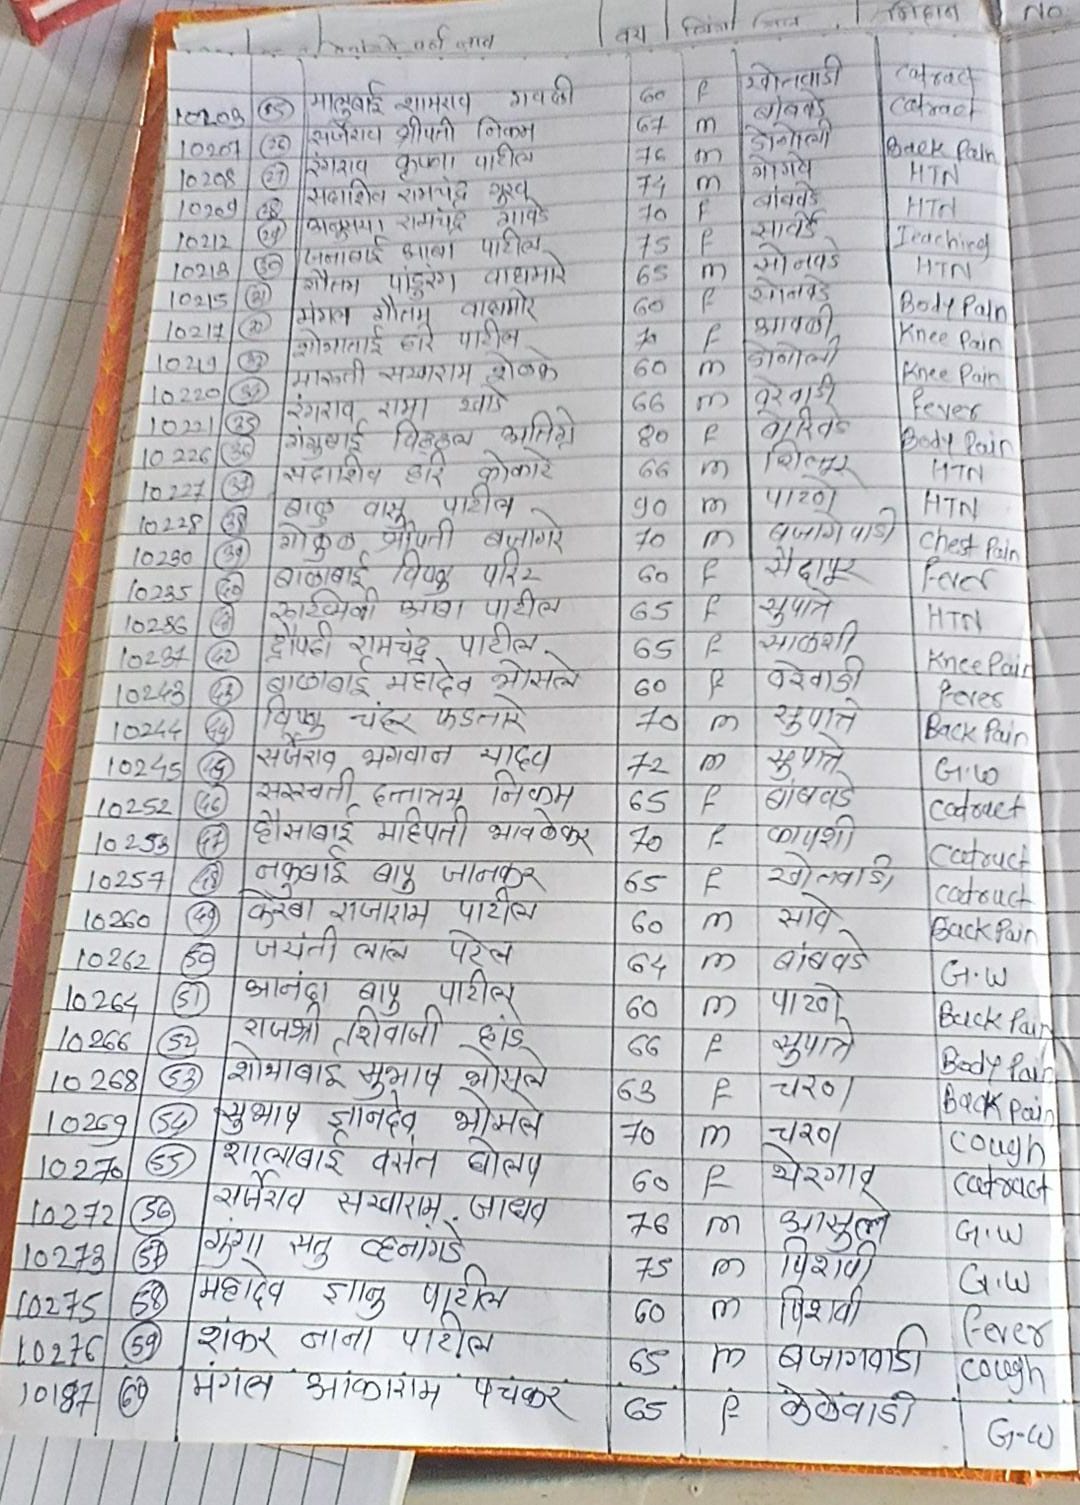 वय No.
10203 25 मालुबाई शामराव गवळी 60 F खोतवाडी Catract
10207 26 सर्जेराव श्रीपती निकम 67 m बांबवडे Catract
10208 27 रंगराव कृष्णा पाटील 76 m डोणोली Back Pain
10209 28 सदाशिव रामचंद्र गुरव 74 m गोगवे HTN
10212 29 अनुसया रामचंद्र गावडे 70 F बांबवडे HTN
10213 30 जनाबाई आबा पाटील 75 F सावर्डे Iteaching
10215 31 गौतम पांडुरंग वाघमारे 65 m सोनवडे HTN
10217 32 मंगल गौतम वाघमारे 60 F सोनवडे Body Pain
10219 33 शोभाताई हरि पाटील 70 F आवळी Knee Pain
10220 34 मारुती सखाराम शेळके 60 m डोणोली Knee Pain
10221 35 रंगराव रामा खाडे 66 m वरेवाडी Fever
10226 36 गंगुबाई विठ्ठल अतिग्रे 80 F बोरिवडे Body Pain
10227 37 सदाशिव हरि कोकाटे 66 m शित्तूर HTN
10228 38 बाळु वासु पाटील 90 m पाटणे HTN
10230 39 गोकुळ श्रीपती बजागरे 70 m बजागेवाडी Chest Pain
10235 40 बाळाबाई विष्णु परिट 60 F सैदापूर Fever
10236 41 रुक्मिणी आबा पाटील 65 F सुपात्रे HTN
10237 42 द्रौपदी रामचंद्र पाटील 65 F साळशी Knee Pain
10243 43 बाळाबाई महादेव भोसले 60 F वरेवाडी Fever
10244 44 विष्णु चंदर फडतारे 70 m सुपात्रे Back Pain
10245 45 सर्जेराव भगवान यादव 72 m सुपात्रे G.W
10252 46 सरस्वती दत्तात्रय निकम 65 F बांबवडे Catract
10253 47 हौसाबाई महिपती भावकेकर 70 F कापशी Catract
10257 48 नकुबाई बापु जानकर 65 F खोतवाडी Catract
10260 49 केरबा राजाराम पाटील 60 m सावे Back Pain
10262 50 जयंती लाल पटेल 64 m बांबवडे G.W
10264 51 आनंदा बापु पाटील 60 m पाटणे Back Pain
10266 52 राजश्री शिवाजी हांडे 66 F सुपात्रे Body Pain
10268 53 शोभाबाई सुभाष भोसले 63 F चरण Back Pain
10269 54 सुभाष ज्ञानदेव भोसले 70 m चरण Cough
10270 55 शालाबाई वसंत घोलप 60 F थेरगाव Catract
10272 56 सर्जेराव सखाराम जाधव 76 m आसुर्ले G.W
10273 57 गुंगा सतु व्हनागडे 75 m पिशवी G.W
10275 58 महादेव ज्ञानु पाटील 60 m पिशवी Fever
10276 59 शंकर नाना पाटील 65 m बजागवाडी Cough
10187 60 मंगल आकाराम पचकर 65 F केळेवाडी G-W